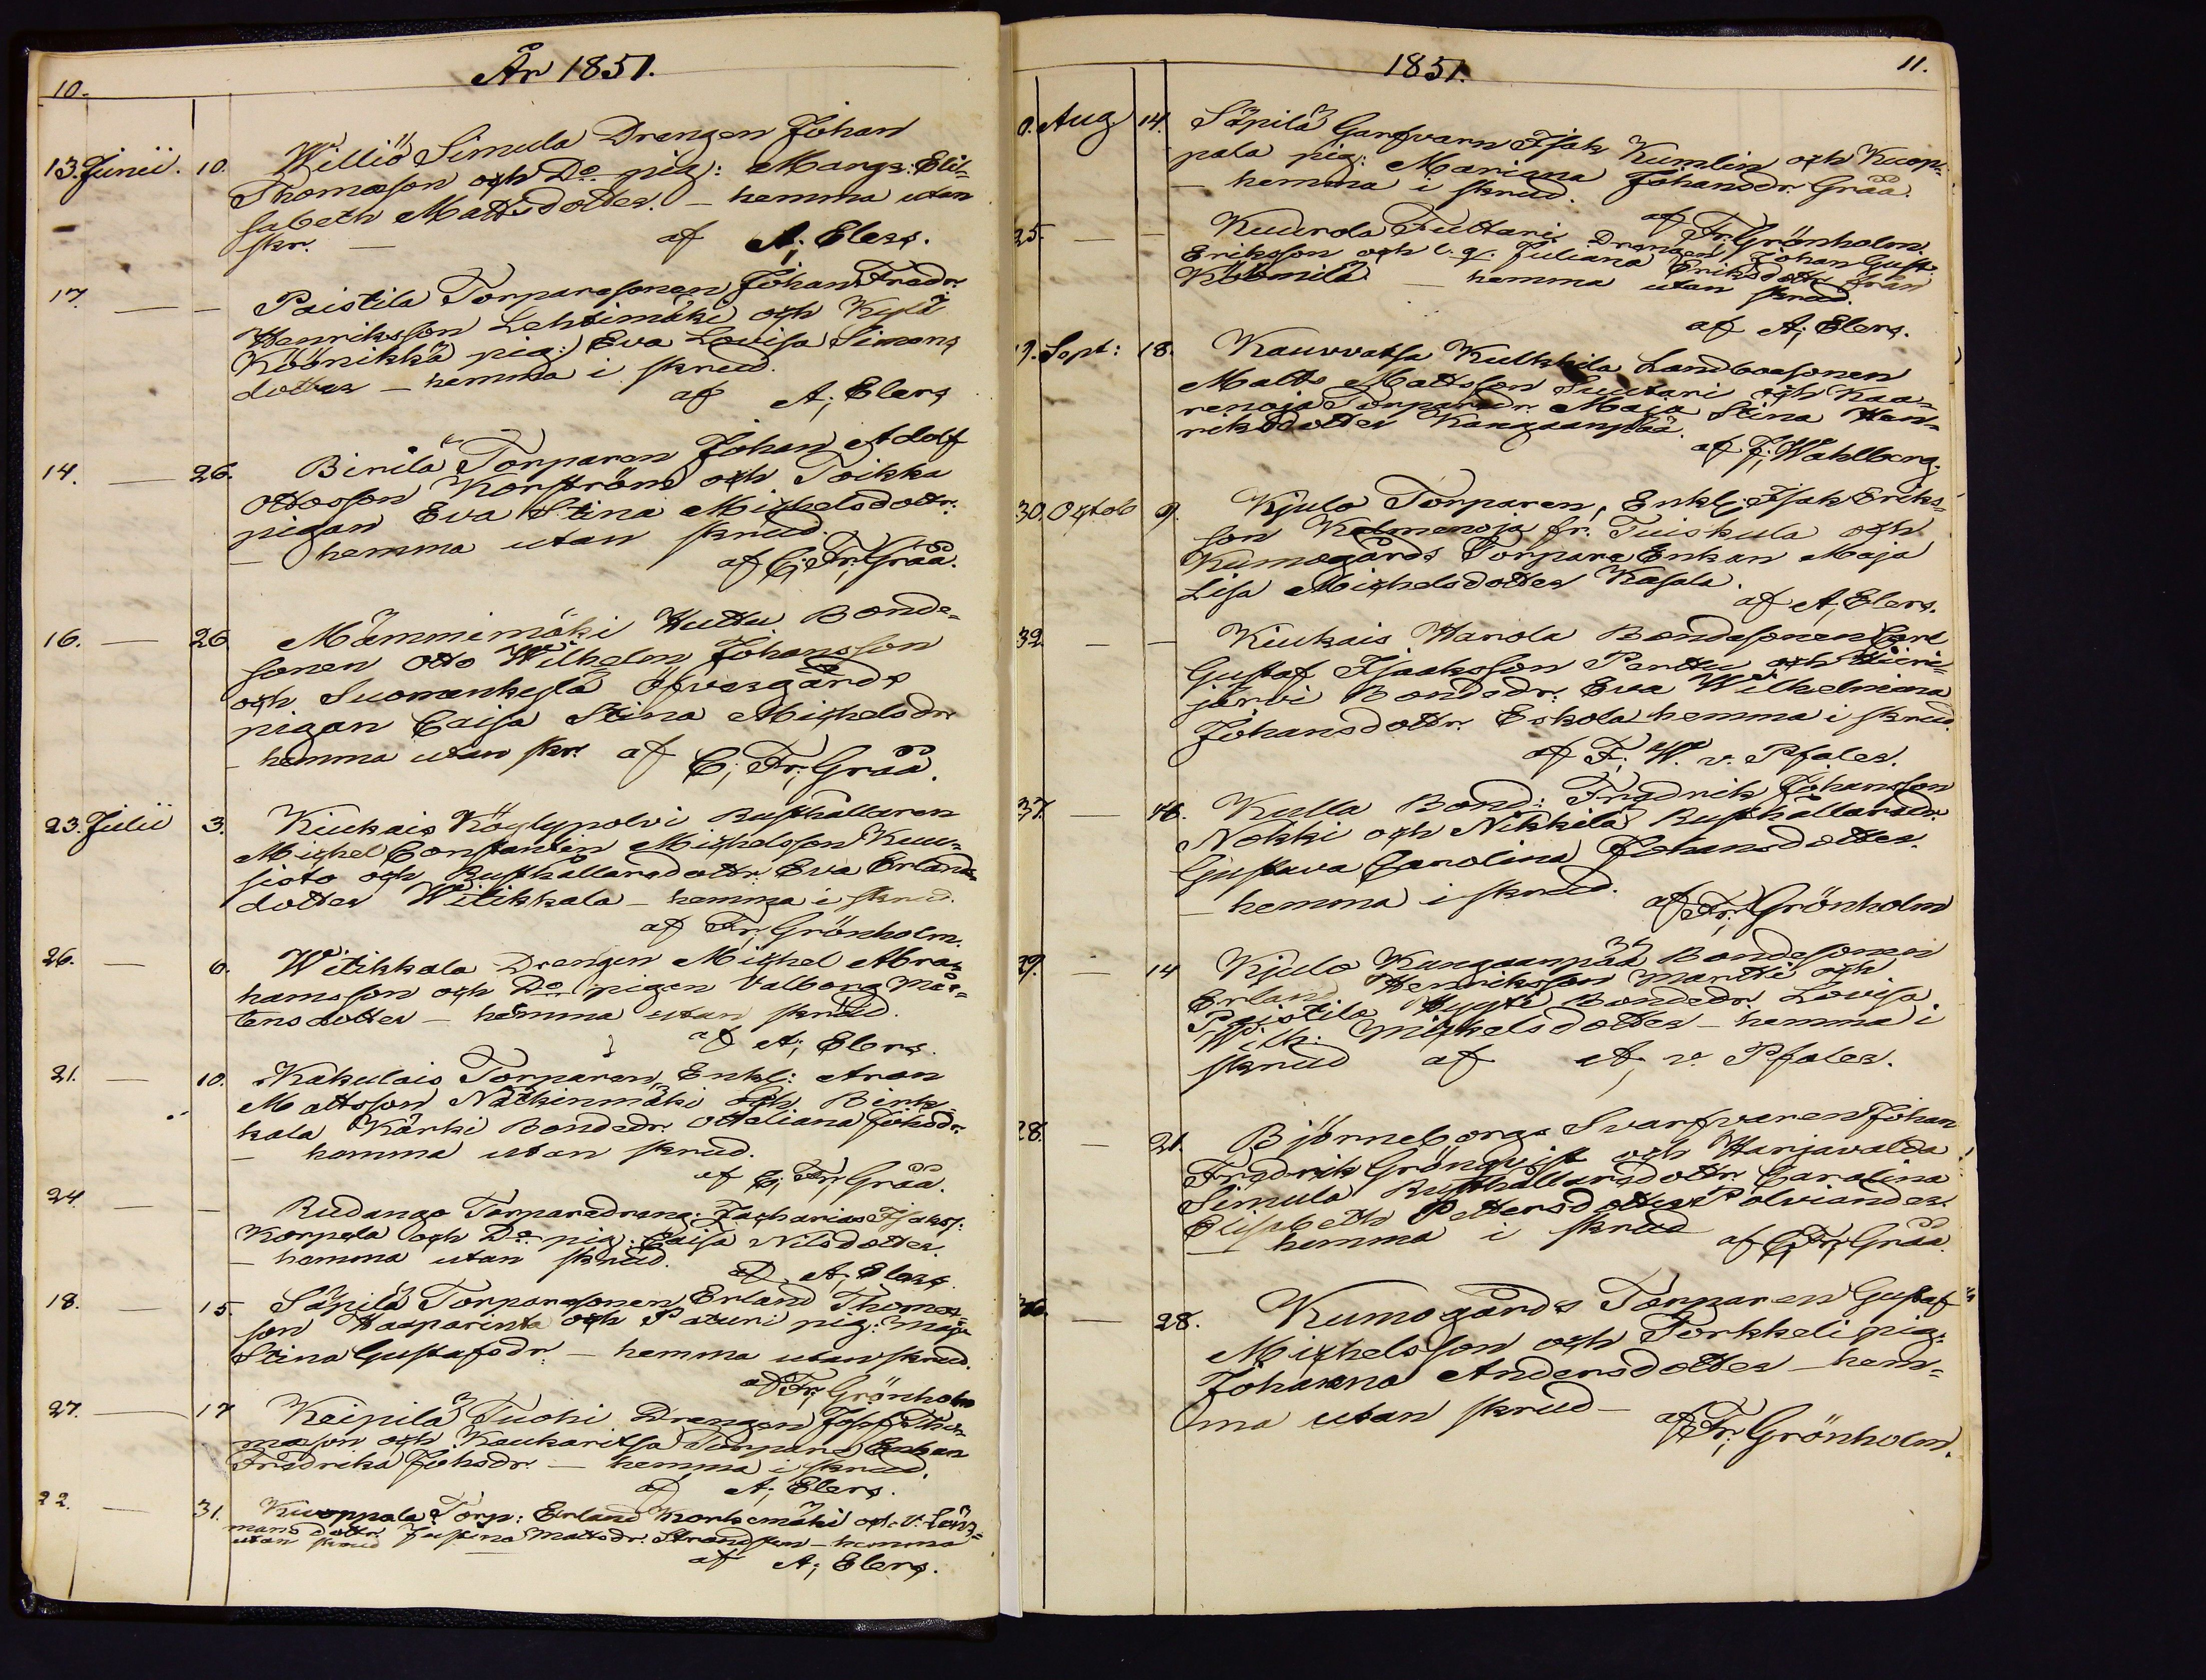 10.
År 1851.
13. Junii. 10. Williö Simula Drengen Johan
Thomasson och Do pig: Marga: Elis-
sabeth Mattsdotter. - hemma utan
skr. - af A; Elers.
17. — — Paistila Torparesonen Johan Fredr.
Henriksson Lehtimäki och Kylä
Köönikkä pig: Eva Lovisa Simons
dotter - hemma i skrud.
af A; Elers
14. — 26. Birilä Torparen Johan Adolf
Ottosson Korström och Toikka
pigan Eva Stina Michelsdottr.
- hemma utan skrud.
af C; Fr; Gråå.
16. — 26 Mämmimäki Huttu Bonde-
sonen Otto Wilhelm Johansson
och Suomenkylä Öfvergårds
pigan Caisa Stina Michelsdr
- hemma utan skr. af C; Fr; Gråå.
23. Julii 3. Kiukais Köylypolvi Rusthållaren
Michel Constantin Michelsson Kuu-
sisto och Rusthållaredottr. Eva Erlands-
dotter Witikkala - hemma i skrud.
af Fr; Grönholm.
26. — 6. Witikkala Drengen Michel Abra-
hamsson och Do pigan Valborg Mår-
tensdotter - hemma utan skrud.
af A; Elers.
21. — 10. Kakulais Torparen, Enkl: Aron
Mattsson Nätkinmäki och Birk-
kala Kärki Bondedr. Ottiliana Johsdr.
- hemma utan skrud.
af C; Fr; Gråå.
24. — — Rudanga Torparedreng. Zacharias Isakss.
Korpela och Do pig. Caisa Nilsdotter.
- hemma utan skrud. af A; Elers.
18. — 15. Säpilä Torparesonen Erland Thomas-
son Haaparinta och Paturi pig: Maja
Stina Gustafsdr. - hemma utan skrud.
af Fr; Grönholm
27. — 17 Keipilä Tuohi Drengen Josef Tho-
masson och Kaukaritsa Torpare Enkan
Fredrika Johsdr. - hemma i skrud.
af A; Elers.
22. — 31. Kuoppala Torp: Erland Korkemäki och v. Läns-
mans dottr. Justina Mattsdr. Strandsten - hemma
utan skrud
af A; Elers.
1851.
11.
Aug. 14. Säpilä Garfvarn Isak Kumlin och Kuop-
pala pig: Mariana Johansdr. Gråå.
- hemma i skrud.
af Fr; Grönholm
25. — — Kuurola Tuttari Drengen Johan Gust.
Eriksson och v. q. Juliana Eriksdottr från
Köömilä - hemma utan skrud.
af A; Elers.
19. Sept: 18. Kauvvatsa Kulkkila Landboesonen
Matts Mattsson Suutari och Kaa-
renoja Torparedr. Maja Stina Hen-
riksdotter Kangaanpää.
af J; Wahlberg.
30. Octob 9. Kjulo Torparen, Enkl; Isak Eriks-
son Kelmenoja fr. Tuiskula och
Kumogårds Torpare Enkan Maja
Lisa Michelsdotter Kasala.
af A; Elers.
32 — — Kiukais Harola Bondesonen Carl
Gustaf Isaksson Perttu och Hiiri-
järvi Bondedr. Eva Wilhelmina
Johansdottr. Eskola hemma i skrud.
af F; W. v. Pfaler.
37. — Kulla Bond: Fredrik Johansson
Nokki och Nikkilä Rusthållaredr.
Gustava Carolina Johansdotter.
- hemma i skrud.
af Fr; Grönholm
29. — 14 Kjulo Kangaanpää Bondesonen
Erland Henriksson Martti och
Paistila Hyyti Bondedr. Lovisa
Wilh: Michelsdotter - hemma i
skrud af A; v. Pfaler.
28. — 21. Björneborgs Svarfvaren Johan
Fredrik Grönqvist och Harjavalda
Simula Rusthållarsdottr. Carolina
Elisabeth Pettersdotter Polviander
- hemma i skrud af C; Fr; Gråå
36. — 28. Kumogårds Torparen Gustaf
Michelsson och Torkkeli pig:
Johanna Andersdotter - hem-
ma utan skrud -
af Fr; Grönholm.